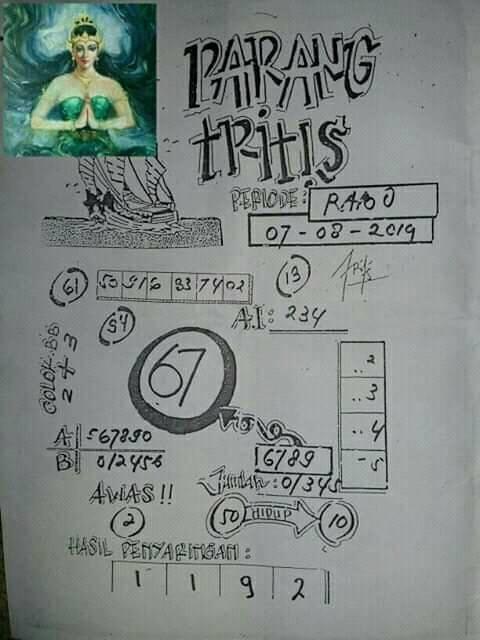 PARANG
tRitis
PERIODE: RABU
07-08-2019
61
50 91 6 33 74 02
13
54
A.I: 234
COLOK.BB
2 4 3
67
..2
..3
..4
-5
A 567890
B 012456
6789
Jumlah: 01345
AWAS!!
2
50 HIDUP 10
HASIL PENYARINGAN:
1 1 9 2